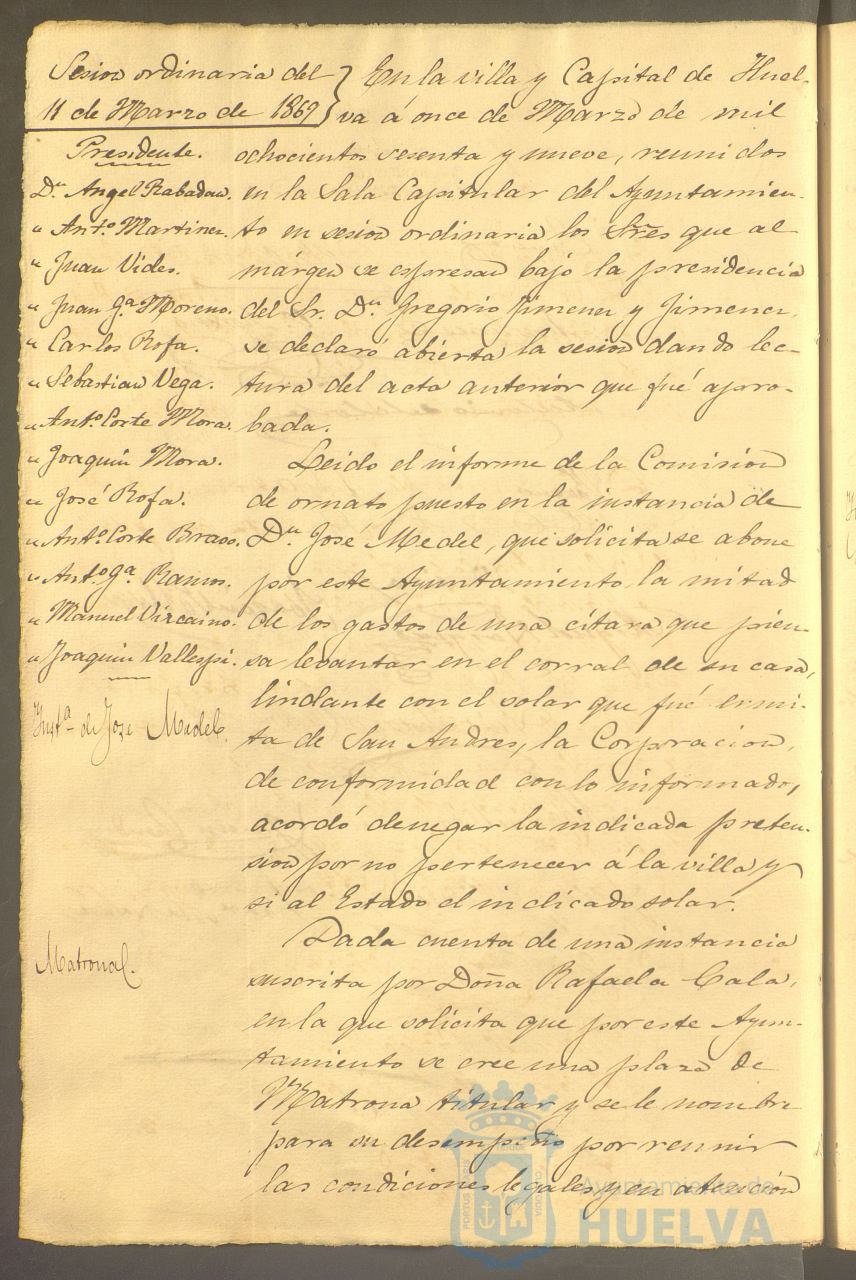 Sesion ordinaria del
11 de Marzo de 1869
Presidente.
Dn. Angel Rabadan.
" Anto. Martinez.
" Juan Vides.
" Juan Ga. Moreno.
" Carlos Rofa.
" Sebastian Vega.
" Anto. Corte Mora.
" Joaquin Mora.
" José Rofa.
" Anto. Corte Bravo.
" Anto. Ga. Ramos.
" Manuel Vizcaino.
" Joaquin Vallespi.
Insta. de Joze Medel.
Matrona.
En la villa y Capital de Huel-
va á once de Marzo de mil
ochocientos sesenta y nueve, reunidos
en la Sala Capitular del Ayuntamien-
to en sesion ordinaria los Sres que al
márgen se espresan bajo la presidencia
del Sr. Dn. Gregorio Jimenez y Jimenez,
se declaró abierta la sesion dando lec-
tura del acta anterior que fué apro-
bada.
Leido el informe de la Comision
de ornato puesto en la instancia de
Dn. José Medel, que solicita se abone
por este Ayuntamiento la mitad
de los gastos de una citara que pien-
sa levantar en el corral de su casa,
lindante con el solar que fué ermi-
ta de San Andres, la Corporacion,
de conformidad con lo informado,
acordó denegar la indicada preten-
sion por no pertenecer á la villa y
si al Estado el indicado solar.
Dada cuenta de una instancia
suscrita por Doña Rafaela Cala,
en la que solicita que por este Ayun-
tamiento se cree una plaza de
Matrona titular y se le nombre
para su desempeño por reunir
las condiciones legales y en atencion
Ayuntamiento de
HUELVA